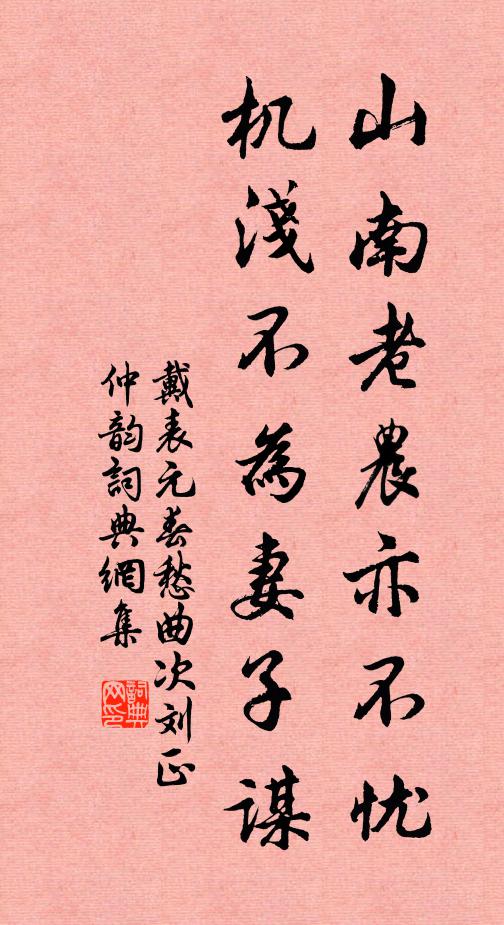 山南老農亦不忧
机淺不為妻子謀
戴表元春愁曲次刘正
仲韵詞典網集
詞典
网印